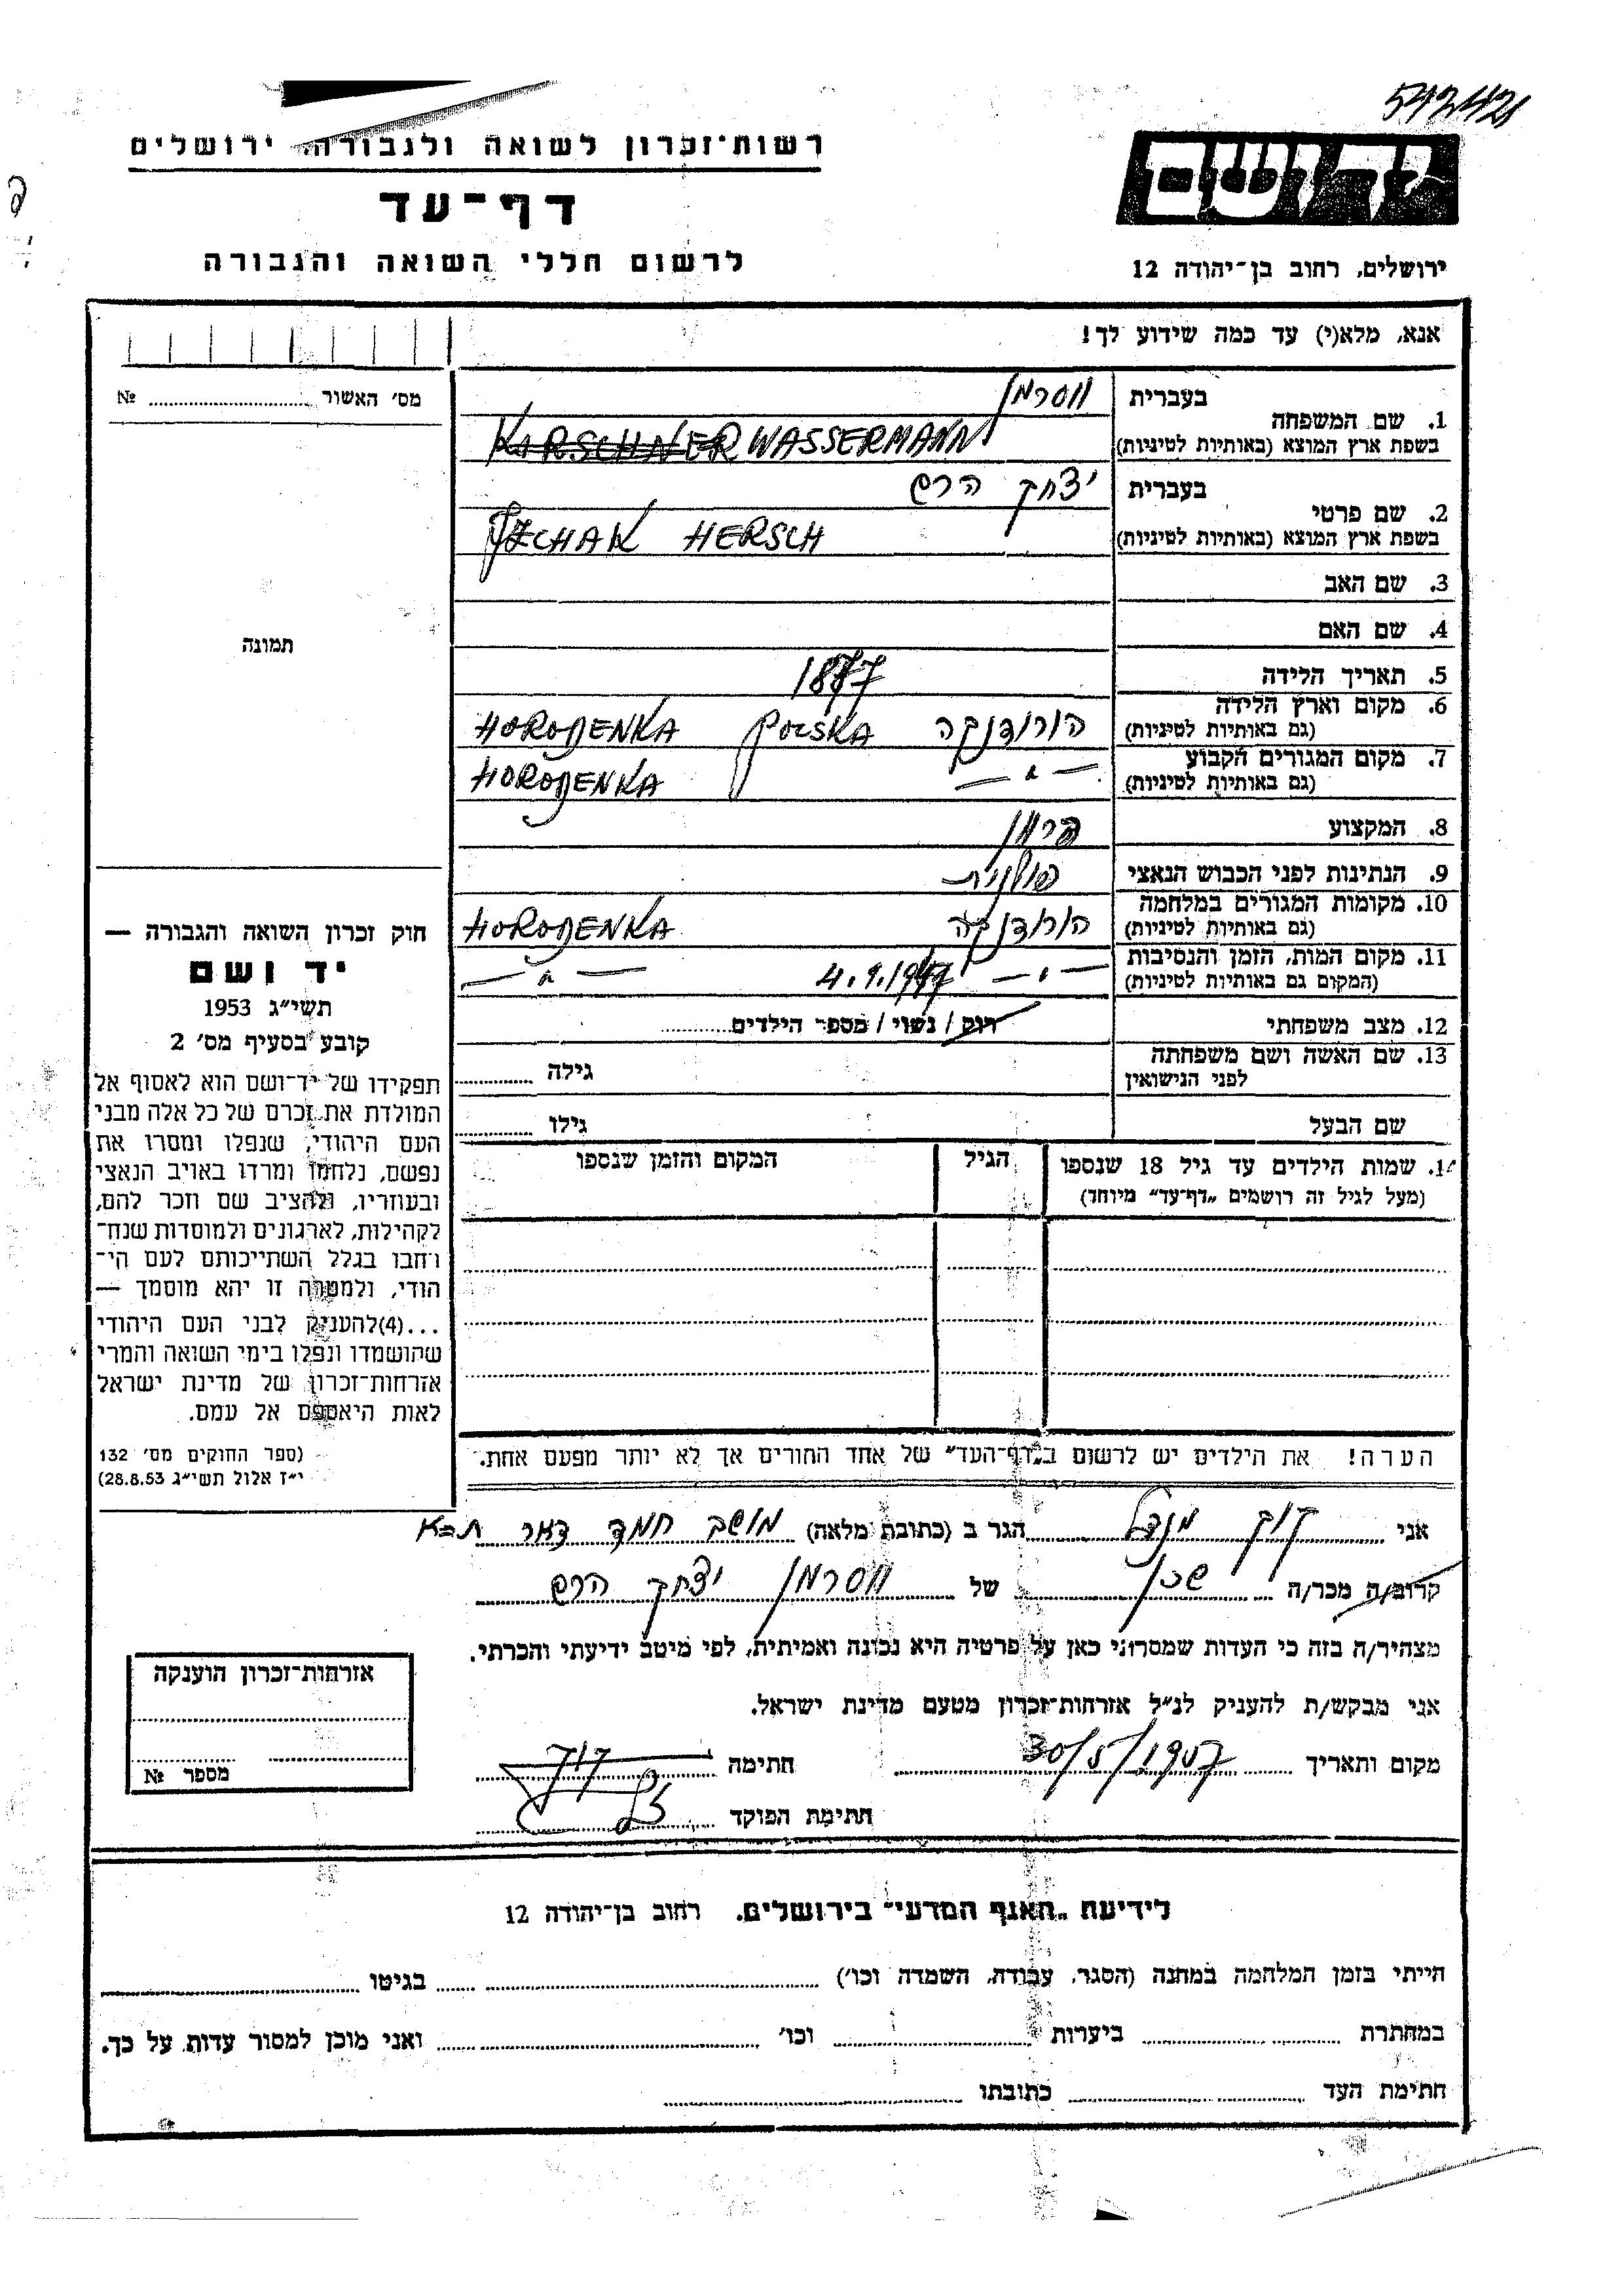 542421
רשות־זכרון לשואה ולגבורה, ירושלים
דף־עד
לרשום חללי השואה והגבורה
יד ושם
ירושלים, רחוב בן־יהודה 12
אנא, מלא(י) עד כמה שידוע לך!
מס' האשור №
1. שם המשפחה
בעברית
ווסרמן
בשפת ארץ המוצא (באותיות לטיניות)
KIRSCHNER WASSERMANN
2. שם פרטי
בעברית
יצחק הרש
בשפת ארץ המוצא (באותיות לטיניות)
IZCHAK HERSCH
3. שם האב
4. שם האם
תמונה
5. תאריך הלידה 1877
6. מקום וארץ הלידה
(גם באותיות לטיניות)
הורודנקה POLSKA HORODENKA
7. מקום המגורים הקבוע
(גם באותיות לטיניות)
— " — HORODENKA
8. המקצוע
9. הנתינות לפני הכבוש הנאצי פולנית
10. מקומות המגורים במלחמה
(גם באותיות לטיניות)
הורודנקה HORODENKA
11. מקום המות, הזמן והנסיבות
(המקום גם באותיות לטיניות)
— " — 4.9.194 — " —
12. מצב משפחתי רווק / נשוי / מספר הילדים
13. שם האשה ושם משפחתה
לפני הנישואין
גילה
שם הבעל גילו
14. שמות הילדים עד גיל 18 שנספו
(מעל לגיל זה רושמים „דף־עד" מיוחד)
הגיל
המקום והזמן שנספו
חוק זכרון השואה והגבורה —
יד ושם
תשי"ג 1953
קובע בסעיף מס' 2
תפקידו של יד־ושם הוא לאסוף אל
המולדת את זכרם של כל אלה מבני
העם היהודי, שנפלו ומסרו את
נפשם, נלחמו ומרדו באויב הנאצי
ובעוזריו, ולהציב שם וזכר להם,
לקהילות, לארגונים ולמוסדות שנח־
רבו בגלל השתייכותם לעם הי־
הודי, ולמטרה זו יהא מוסמך —
...(4)להעניק לבני העם היהודי
שהושמדו ונפלו בימי השואה והמרי
אזרחות־זכרון של מדינת ישראל
לאות היאספם אל עמם.
(ספר החוקים מס' 132
י"ז אלול תשי"ג 28.8.53)
הערה! את הילדים יש לרשום ב„דף־העד" של אחד החורים אך לא יותר מפעם אחת.
אני קוק מנדל הגר ב (כתובת מלאה) מושב חמד דאר ת־א
קרוב/ה מכר/ה שכן של ווסרמן יצחק הרש
מצהיר/ה בזה כי העדות שמסרתי כאן על פרטיה היא נכונה ואמיתית, לפי מיטב ידיעתי והכרתי.
אני מבקש/ת להעניק לנ"ל אזרחות־זכרון מטעם מדינת ישראל.
מקום ותאריך 30/5/1957 חתימה קוק
חתימת הפוקד
אזרחות־זכרון הוענקה
מספר №
לידיעת „האגף המדעי" בירושלים, רחוב בן־יהודה 12
הייתי בזמן המלחמה במחנה (הסגר, עבודה, השמדה וכו') בגיטו
במחתרת ביערות וכו' ואני מוכן למסור עדות על כך.
חתימת העד כתובתו